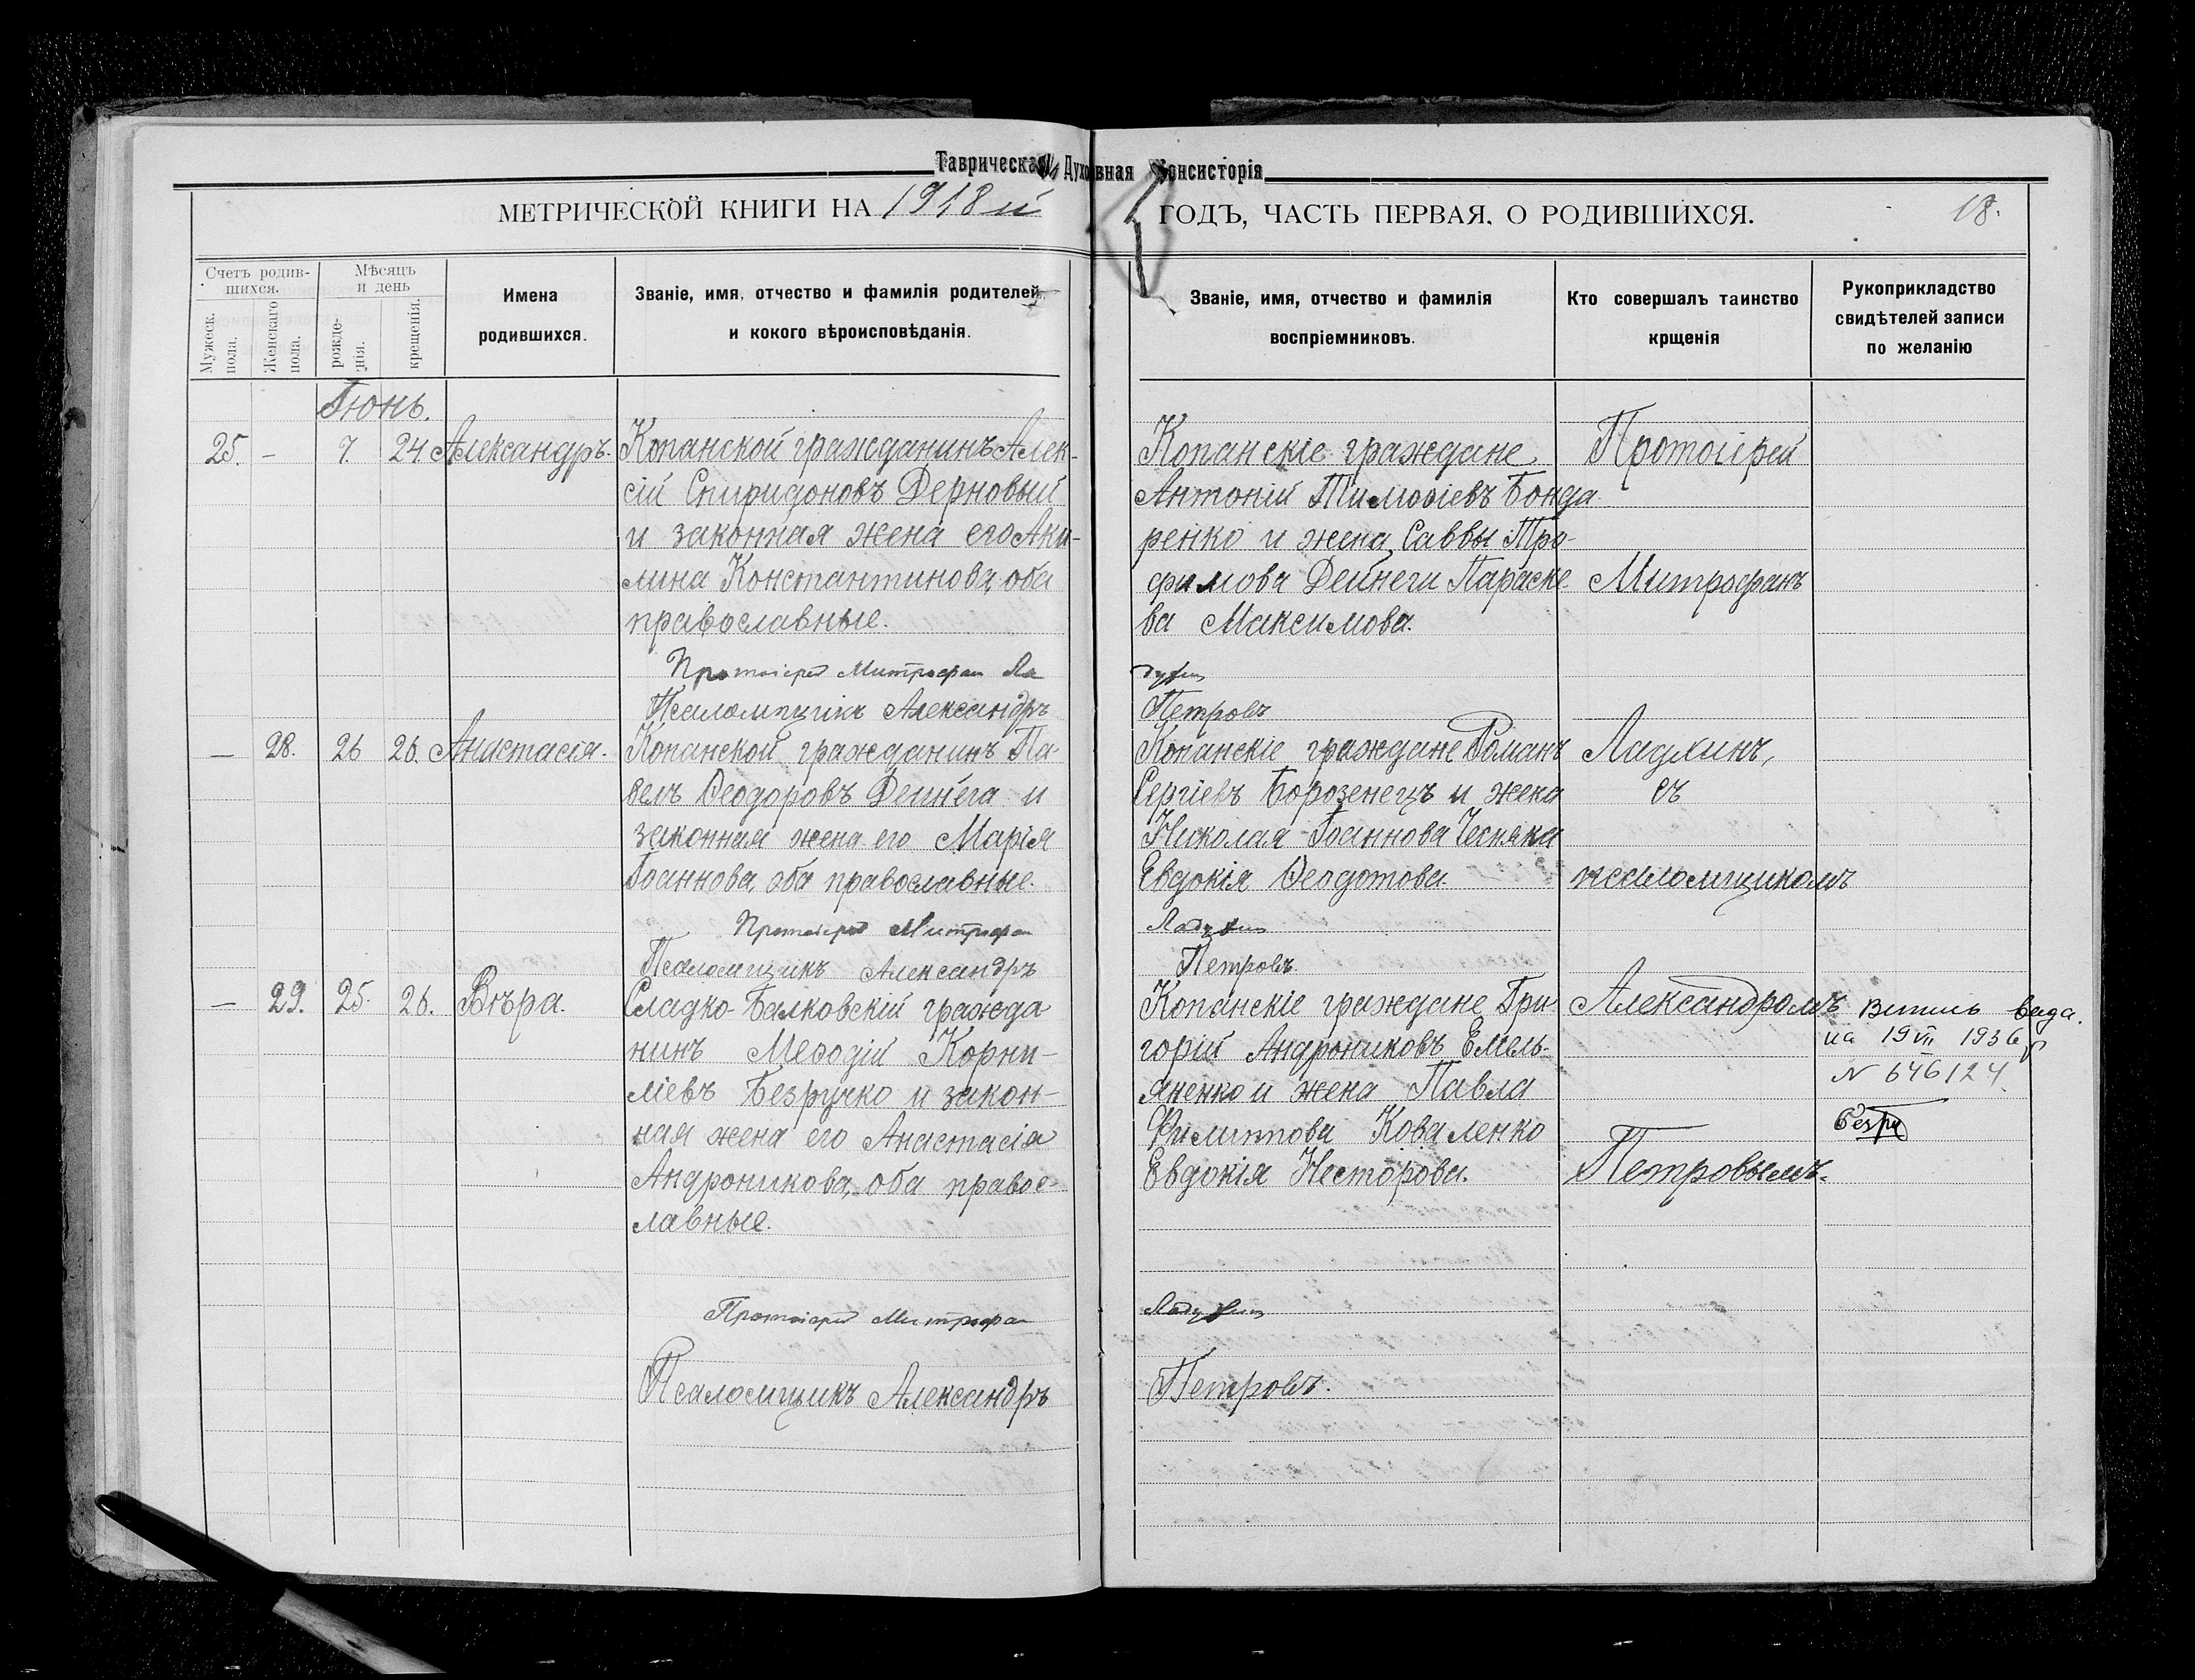 Таврическая Духовная Консисторія
МЕТРИЧЕСКОЙ КНИГИ НА 1918 й
ГОДЪ, ЧАСТЬ ПЕРВАЯ, О РОДИВШИХСЯ.
18.
Счетъ родив-
шихся.
Мужеск.
пола.
Женскаго
пола.
Мѣсяцъ
и день
рожде-
нія.
крещенія.
Имена
родившихся.
Званіе, имя, отчество и фамилія родителей,
и кокого вѣроисповѣданія.
Званіе, имя, отчество и фамилія
воспріемниковъ.
Кто совершалъ таинство
крщенія
Рукоприкладство
свидѣтелей записи
по желанію
Іюнь.
25. - 7. 24. Александръ.
Копанской гражданинъ Алек-
сій Спиридоновъ Дерновый
и законная жена его Аки-
лина Константинова, оба
православные.
Протоіерей Митрофан Ла
Псаломщикъ Александръ
Копанскіе граждане
Антоній Тимоѳіевъ Бонда-
ренко и жена Саввы Тро-
фимова Дейнеги Параске-
ва Максимова.
духин
Петровъ
Протоіерей
Митрофанъ
— 28. 26 26. Анастасія.
Копанской гражданинъ Па-
велъ Ѳеодоровъ Дейнега и
законная жена его Марія
Іоаннова, оба православные.
Протоіерей Митрофан
Псаломщикъ Александръ
Копанскіе граждане Романъ
Сергіевъ Борозенецъ и жена
Николая Іоаннова Чесняка
Евдокія Ѳеодотова.
Ладухин
Петровъ.
Ладухинъ,
съ
псаломщикомъ
— 29. 25. 26. Вѣра.
Сладко-Балковскій гражда
нинъ Меѳодій Корни-
ліевъ Безручко и закон-
ная жена его Анастасія
Андроникова, оба правос-
лавные.
Протоіерей Митрофан
Псаломщикъ Александръ
Копанскіе граждане Гри
горій Андрониковъ Емель-
яненко и жена Павла
Филиппова Коваленко
Евдокія Несторова.
Ладухин
Петровъ.
Александромъ
Петровымъ.
на 19 VII 1936 р
N 646124